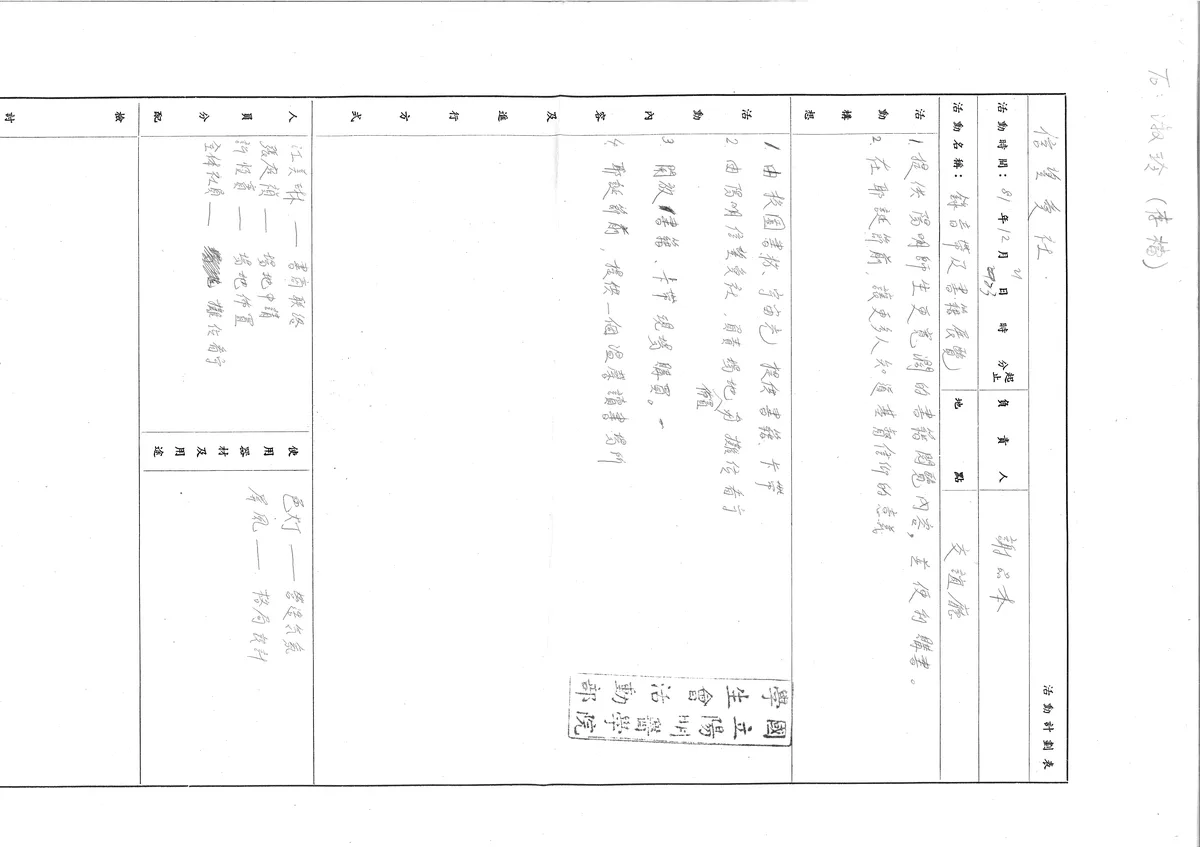 To：淑玲（李楠）
信望愛社
活動計劃表
活動時間：81年12月21日 時 分起止
23
負責人 謝品本
活動名稱：錄音帶及書籍展覽
地點 交誼廳
活動構想
1. 提供陽明師生更寬濶的書籍閱覽內容，並便利購書。
2. 在耶誕節前，讓更多人知道基督信仰的意義
活動內容及進行方式
1. 由校園書房、宇宙光 提供書籍、卡帶
2 由陽明信望愛社，負責場地佈置 攤位看守
3. 開放書籍、卡帶現場購買。
4 耶誕節前，提供一個溫馨讀書場所
國立陽明醫學院
學生會活動部
人員分配
江美琳 — 書商聯絡
張庭禎 — 場地申請
許恆嘉 — 場地佈置
全體社員 — 攤位看守
使用器材及用途
色灯 — 營造氣氛
屏風 — 格局設計
檢討